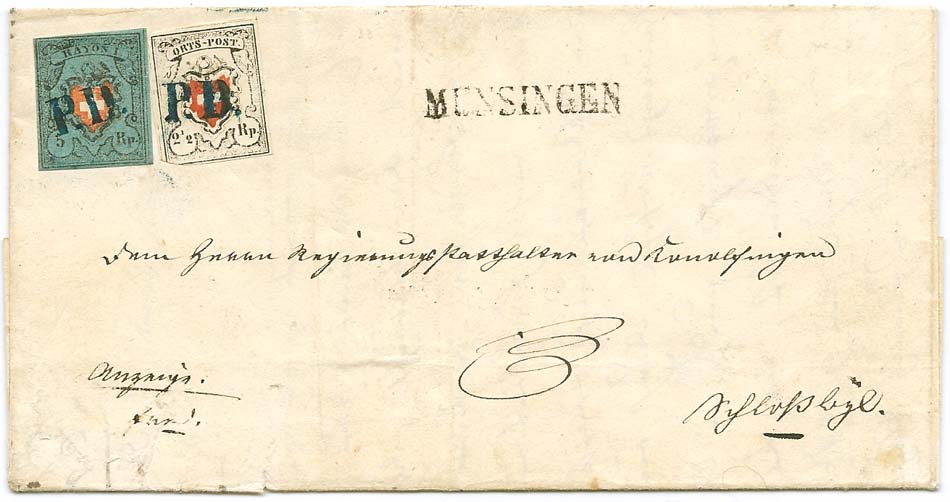 RAYON I.
P.D.
5 Rp.
ORTS-POST.
P.D.
2 1/2 Rp.
MUNSINGEN
Dem Herrn Regierungsstatthalter von Konolfingen
Anzeige.
Schloßwyl.